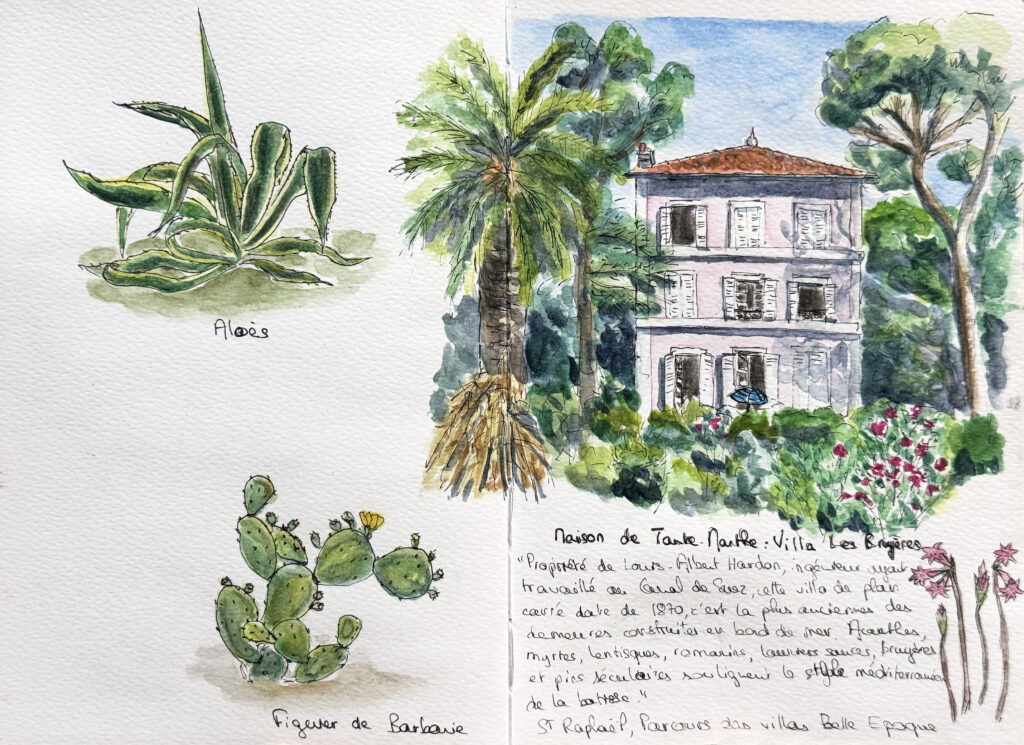 Aloès
Figuier de Barbarie
Maison de Tante Marthe : Villa Les Bruyères
"Propriété de Louis-Albert Hardon, ingénieur ayant
travaillé au Canal de Suez, cette villa de plan
carré date de 1870, c'est la plus anciennes des
demeures construites en bord de mer. Acanthes,
myrtes, lentisques, romarins, lauriers sauces, bruyères
et pins séculaires soulignent le style méditerranéen
de la batisse."
St Raphaël, Parcours des villas Belle Epoque